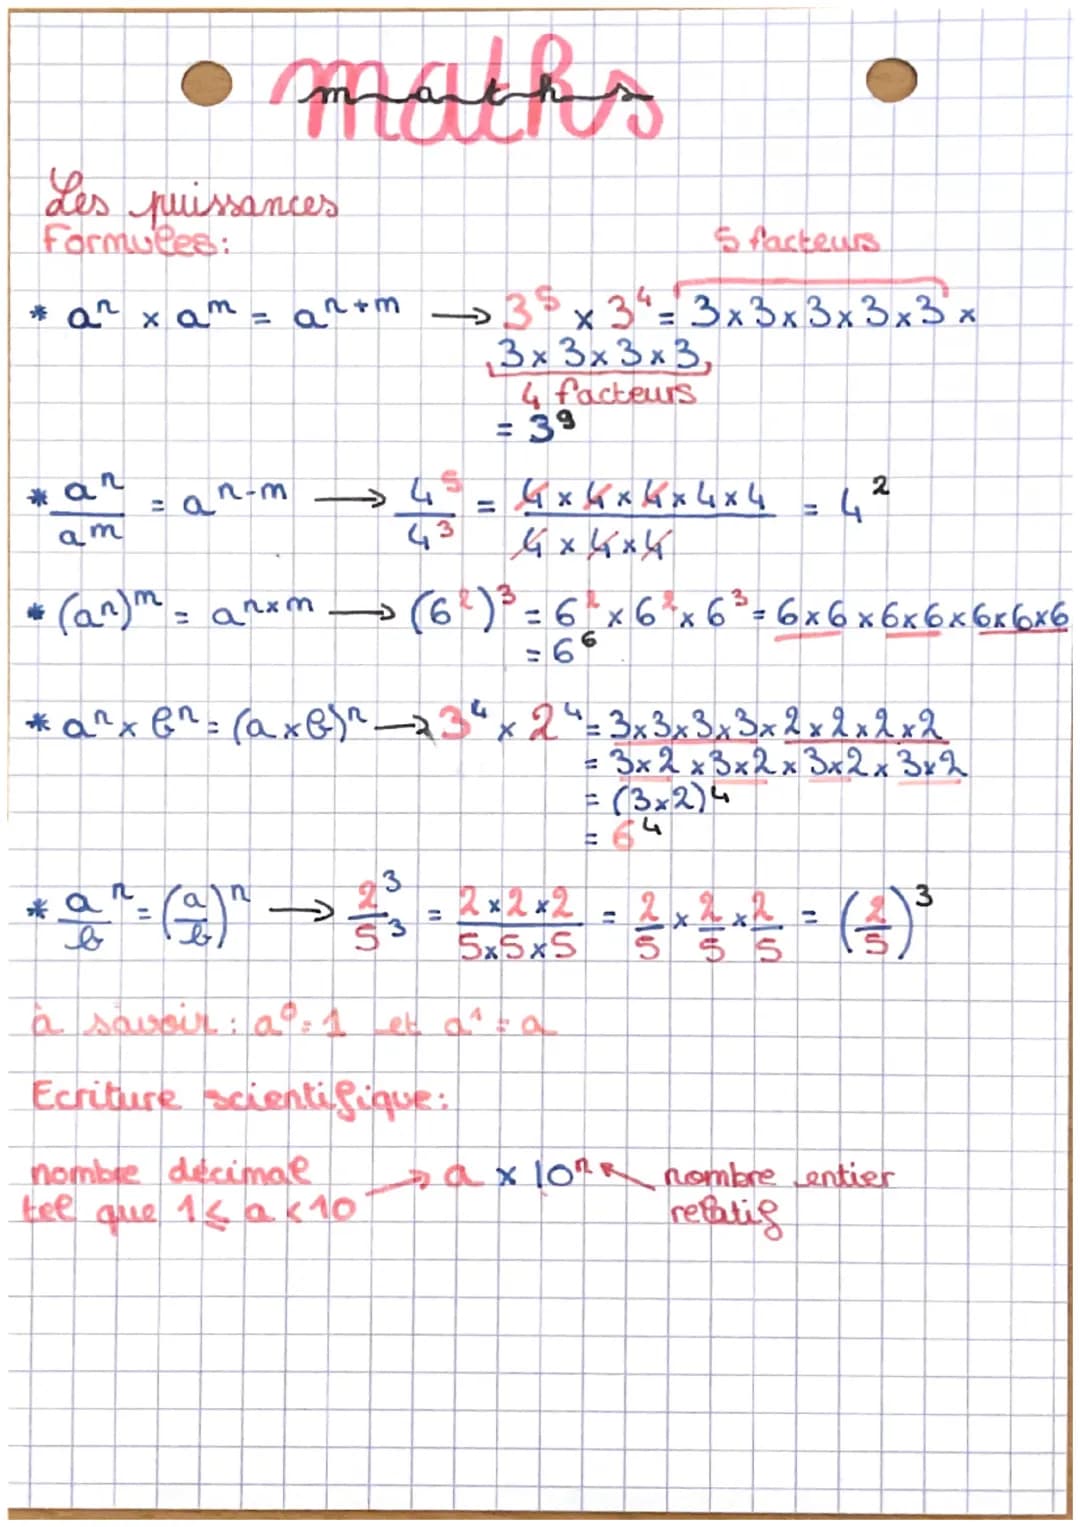 maths
maths
Les puissances
Formules:
5 facteurs
* aⁿ × aᵐ = aⁿ⁺ᵐ → 3⁵ × 3⁴ = 3×3×3×3×3 ×
3×3×3×3
4 facteurs
= 3⁹
* aⁿ/aᵐ = aⁿ⁻ᵐ → 4⁵/4³ = 4×4×4×4×4 / 4×4×4 = 4²
* (aⁿ)ᵐ = aⁿˣᵐ → (6²)³ = 6² × 6² × 6³ = 6×6×6×6×6×6×6
= 6⁶
* aⁿ × bⁿ = (a×b)ⁿ → 3⁴ × 2⁴ = 3×3×3×3×2×2×2×2
= 3×2×3×2×3×2×3×2
= (3×2)⁴
= 6⁴
* a/b ⁿ = (a/b)ⁿ → 2³/5³ = 2×2×2 / 5×5×5 = 2/5 × 2/5 × 2/5 = (2/5)³
à savoir : a⁰ = 1 et a¹ = a
Ecriture scientifique:
nombre décimal → a × 10ⁿ ← nombre entier
tel que 1 ≤ a < 10 relatif